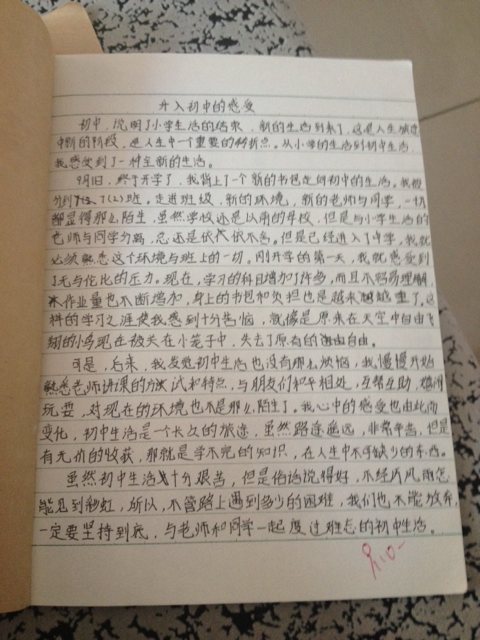 升入初中的感受
初中,说明了小学生活的结束,新的生活到来了,这是人生旅途
中新的阶段,是人生中一个重要的转折点。从小学的生活到初中生活
我感受到了一种全新的生活。
9月1日,终于开学了,我背上了一个新的书包走向初中的生活。我被
分到了 7(2)班。走进班级,新的环境,新的老师与同学,一切
都显得那么陌生,虽然学校还是以前的母校,但是与小学生活的
老师与同学分离,总还是依依不舍。但是已经进入了中学,我就
必须熟悉这个环境与班上的一切。刚开学的第一天,我就感受到
了无与伦比的压力。现在,学习的科目增加了许多,而且不容易理解,
作业量也不断增加,身上的书包和负担也是越来越重了,这
科的学习之涯使我感到十分苦恼,就像是原来在天空中自由飞
翔的小鸟现在被关在小笼子中,失去了原有的自由。
可是,后来,我发觉初中生活也没有那么烦恼,我慢慢开始
熟悉老师讲课的方式和特点,与朋友们和平相处,互帮互助,嬉戏
玩耍,对现在的环境也不是那么陌生了,我心中的感受也由此而
变化,初中生活是一个长久的旅途,虽然路途遥远,非常辛苦,但是
有无价的收获,那就是学不完的知识,在人生中不可缺少的东西。
虽然初中生活十分艰苦,但是俗话说得好,不经历风雨怎
能见到彩虹,所以,不管路上遇到多少的困难,我们也不能放弃,
一定要坚持到底,与老师和同学一起度过难忘的初中生活。